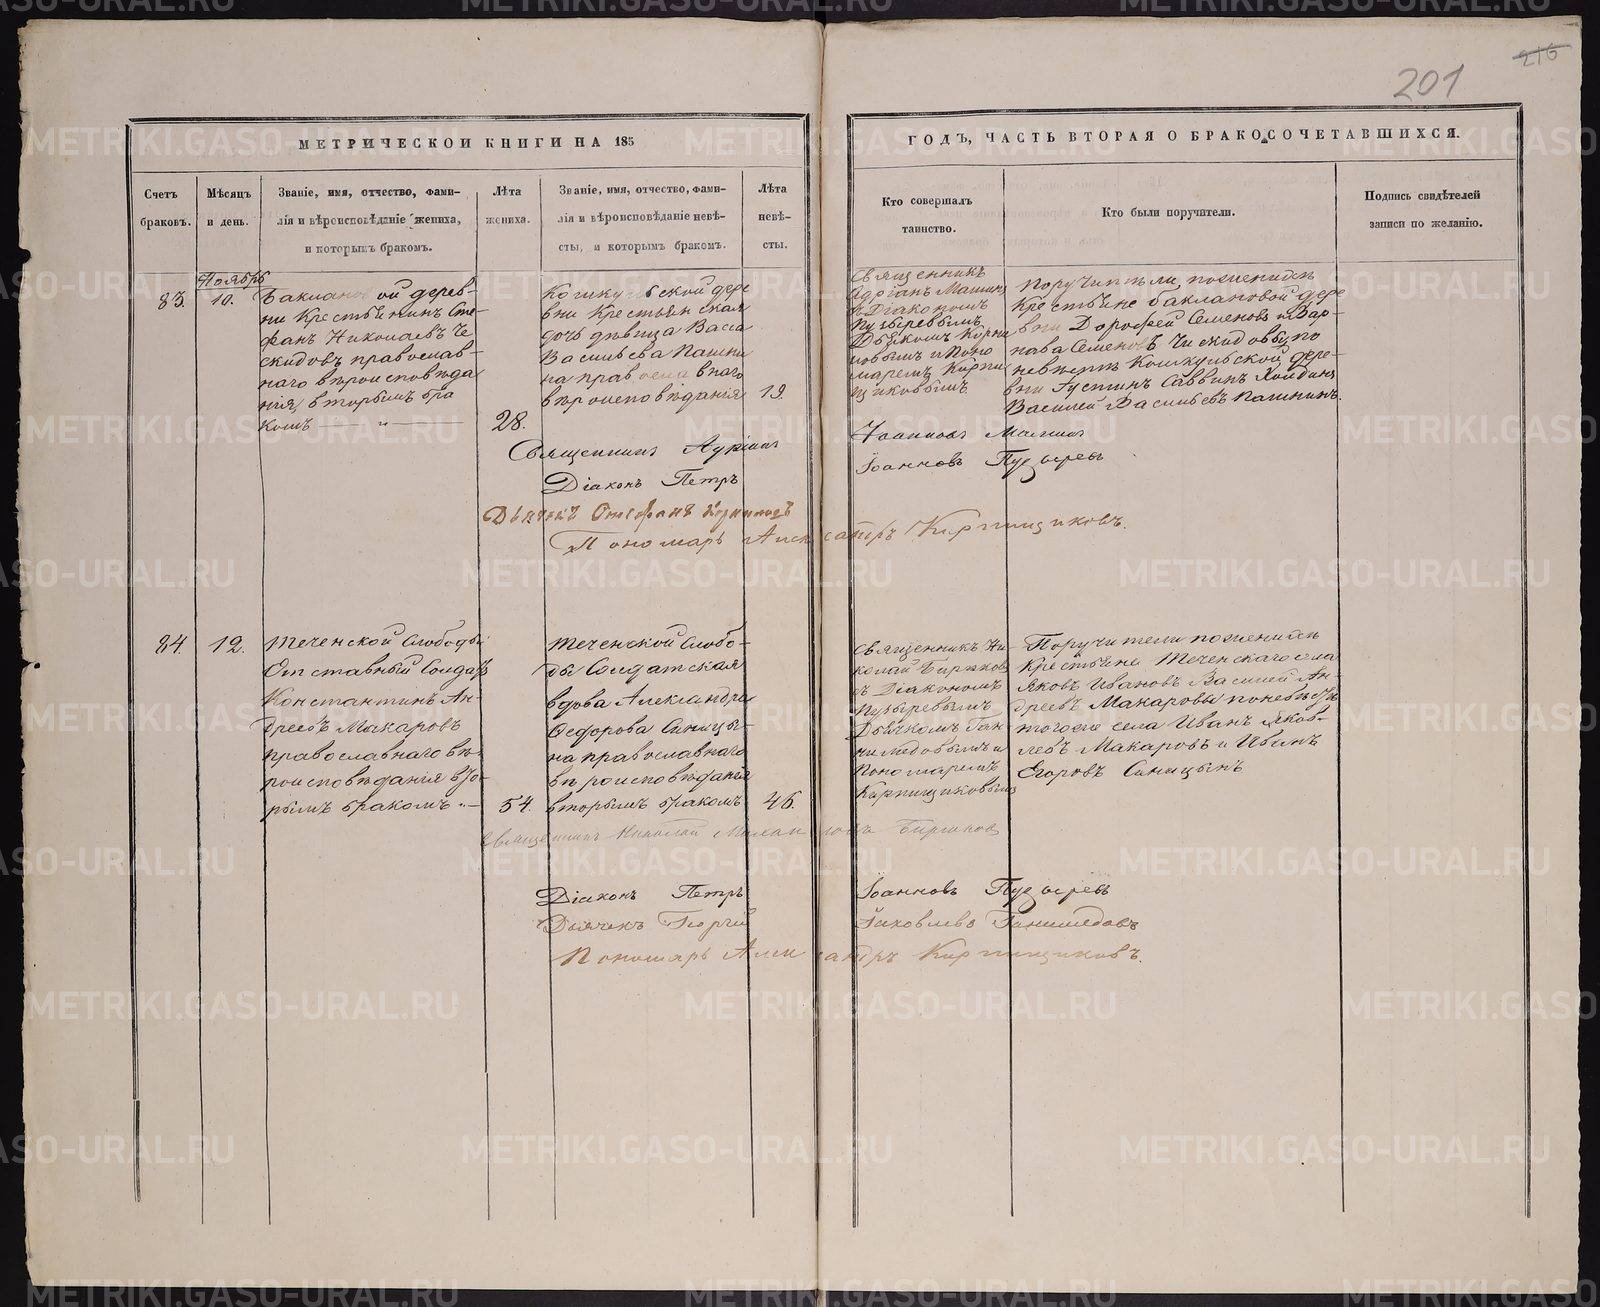 201
216
МЕТРИЧЕСКОЙ КНИГИ НА 185
ГОДЪ, ЧАСТЬ ВТОРАЯ О БРАКОСОЧЕТАВШИХСЯ.
Счетъ
браковъ.
Мѣсяцъ
и день.
Званіе, имя, отчество, фами-
лія и вѣроисповѣданіе жениха,
и которымъ бракомъ.
Лѣта
жениха.
Званіе, имя, отчество, фами-
лія и вѣроисповѣданіе невѣ-
сты, и которымъ бракомъ.
Лѣта
невѣ-
сты.
Кто совершалъ
таинство.
Кто были поручители.
Подпись свидѣтелей
записи по желанію.
83.
Ноябрь
10.
Баклановой дерев-
ни Крестьянинъ Сте-
фанъ Николаевъ Че-
скидовъ православ-
наго вѣроисповѣда
нія, вторымъ бра
комъ
28.
Кошкульской дере
вни Крестьянская
дочь дѣвица Васса
Васильева Пашни
на православнаго
вѣроисповѣданія
19.
Священникъ
Адріанъ
съ Діакономъ
Пузыревымъ
Дьячкомъ
и Поно
маремъ Кирпи
щиковымъ
Поручители по женихѣ
Крестьяне баклановой дере
вни Дорофей Семеновъ и Вар-
нава Семеновъ Чискидовы, по
невѣстѣ Кошкульской дере-
вни Густинъ Саввинъ
Василей Васильевъ Пашнинъ.
Священникъ Адріанъ
Діаконъ Петръ Іоанновъ Пузыревъ
Дьячекъ Стефанъ
Пономарь Александръ Кирпищиковъ.
84.
12.
Теченской Слободы
Отставный Солдатъ
Константинъ Ан-
дреевъ Макаровъ
православнаго вѣ-
роисповѣданія вто-
рымъ бракомъ
54.
Теченской Слобо-
ды Солдатская
вдова Александра
Ѳедорова Синицы-
на православнаго
вѣроисповѣданія
вторымъ бракомъ
46.
Священникъ Ни-
колай Бирюков
съ Діакономъ
Пузыревымъ
Дьячкомъ Ган-
нимедовымъ и
Пономаремъ
Кирпищиковымъ
Поручители по женихѣ
Крестьяне Теченскаго села
Яковъ Ивановъ Василей Ан-
дреевъ Макаровы по невѣстѣ
тогоже села Иванъ Яков-
левъ Макаровъ и Иванъ
Егоровъ Синицынъ
Священникъ Николай Бирюковъ
Діаконъ Петръ Іоанновъ Пузыревъ
Дьячекъ Георгій Іаковлевъ Ганимедовъ
Пономарь Александръ Кирпищиковъ.
METRIKI.GASO-URAL.RU